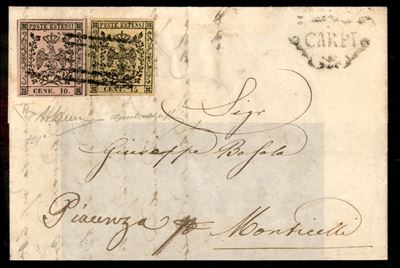 POSTE ESTENSI POSTE ESTENSI
CENE. 10. CENT. 15
CAREI
Sigr
Giuseppe Basola
Piacenza p Monticelli